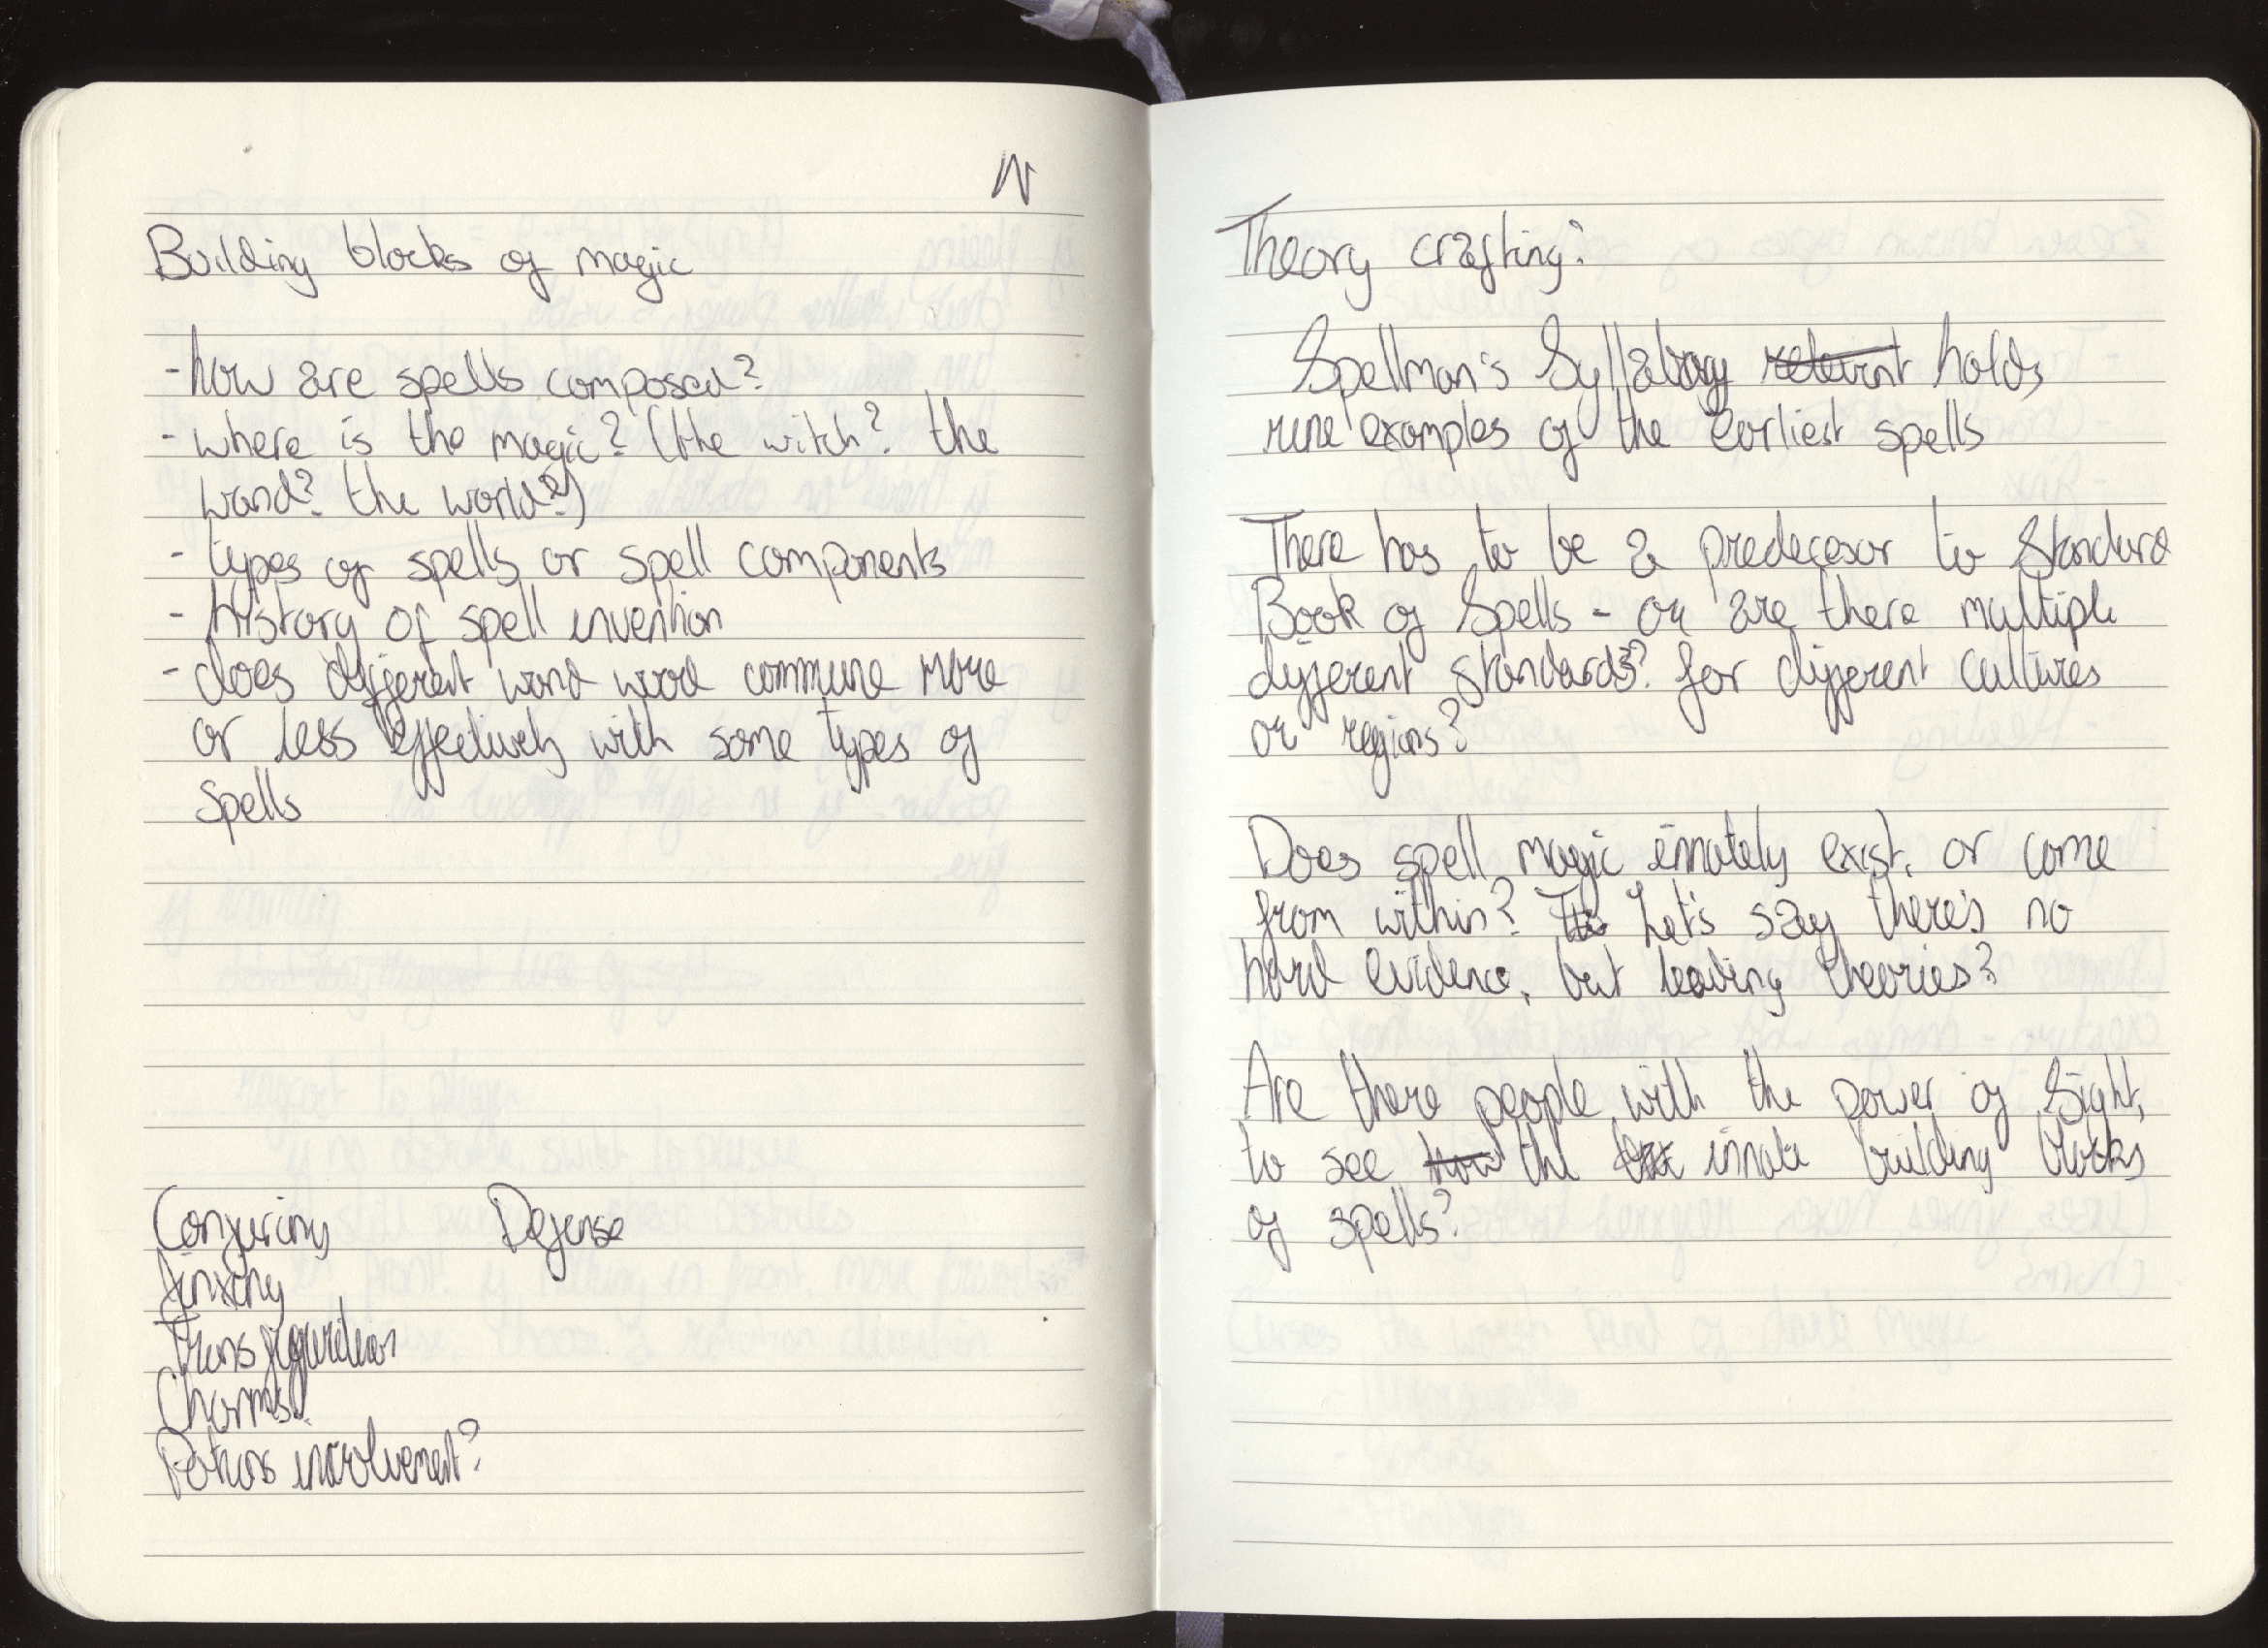 N
Building blocks of magic
- how are spells composed?
- where is the magic? (the witch? the
wand? the world?)
- types of spells or spell components
- history of spell invention
- does different wand wood commune more
or less effectively with some types of
spells
Conjuring Defense
Jinxing
Transfiguration
Charms
Potions involvement?
Theory crafting:
Spellman's Syllabary relevant holds
rune examples of the earliest spells
There has to be a predecesor to Standard
Book of Spells - or are there multiple
different standards? for different cultures
or regions?
Does spell magic innately exist, or come
from within? Let's say there's no
hard evidence, but leading theories?
Are there people with the power of Sight,
to see how the innate building blocks
of spells?